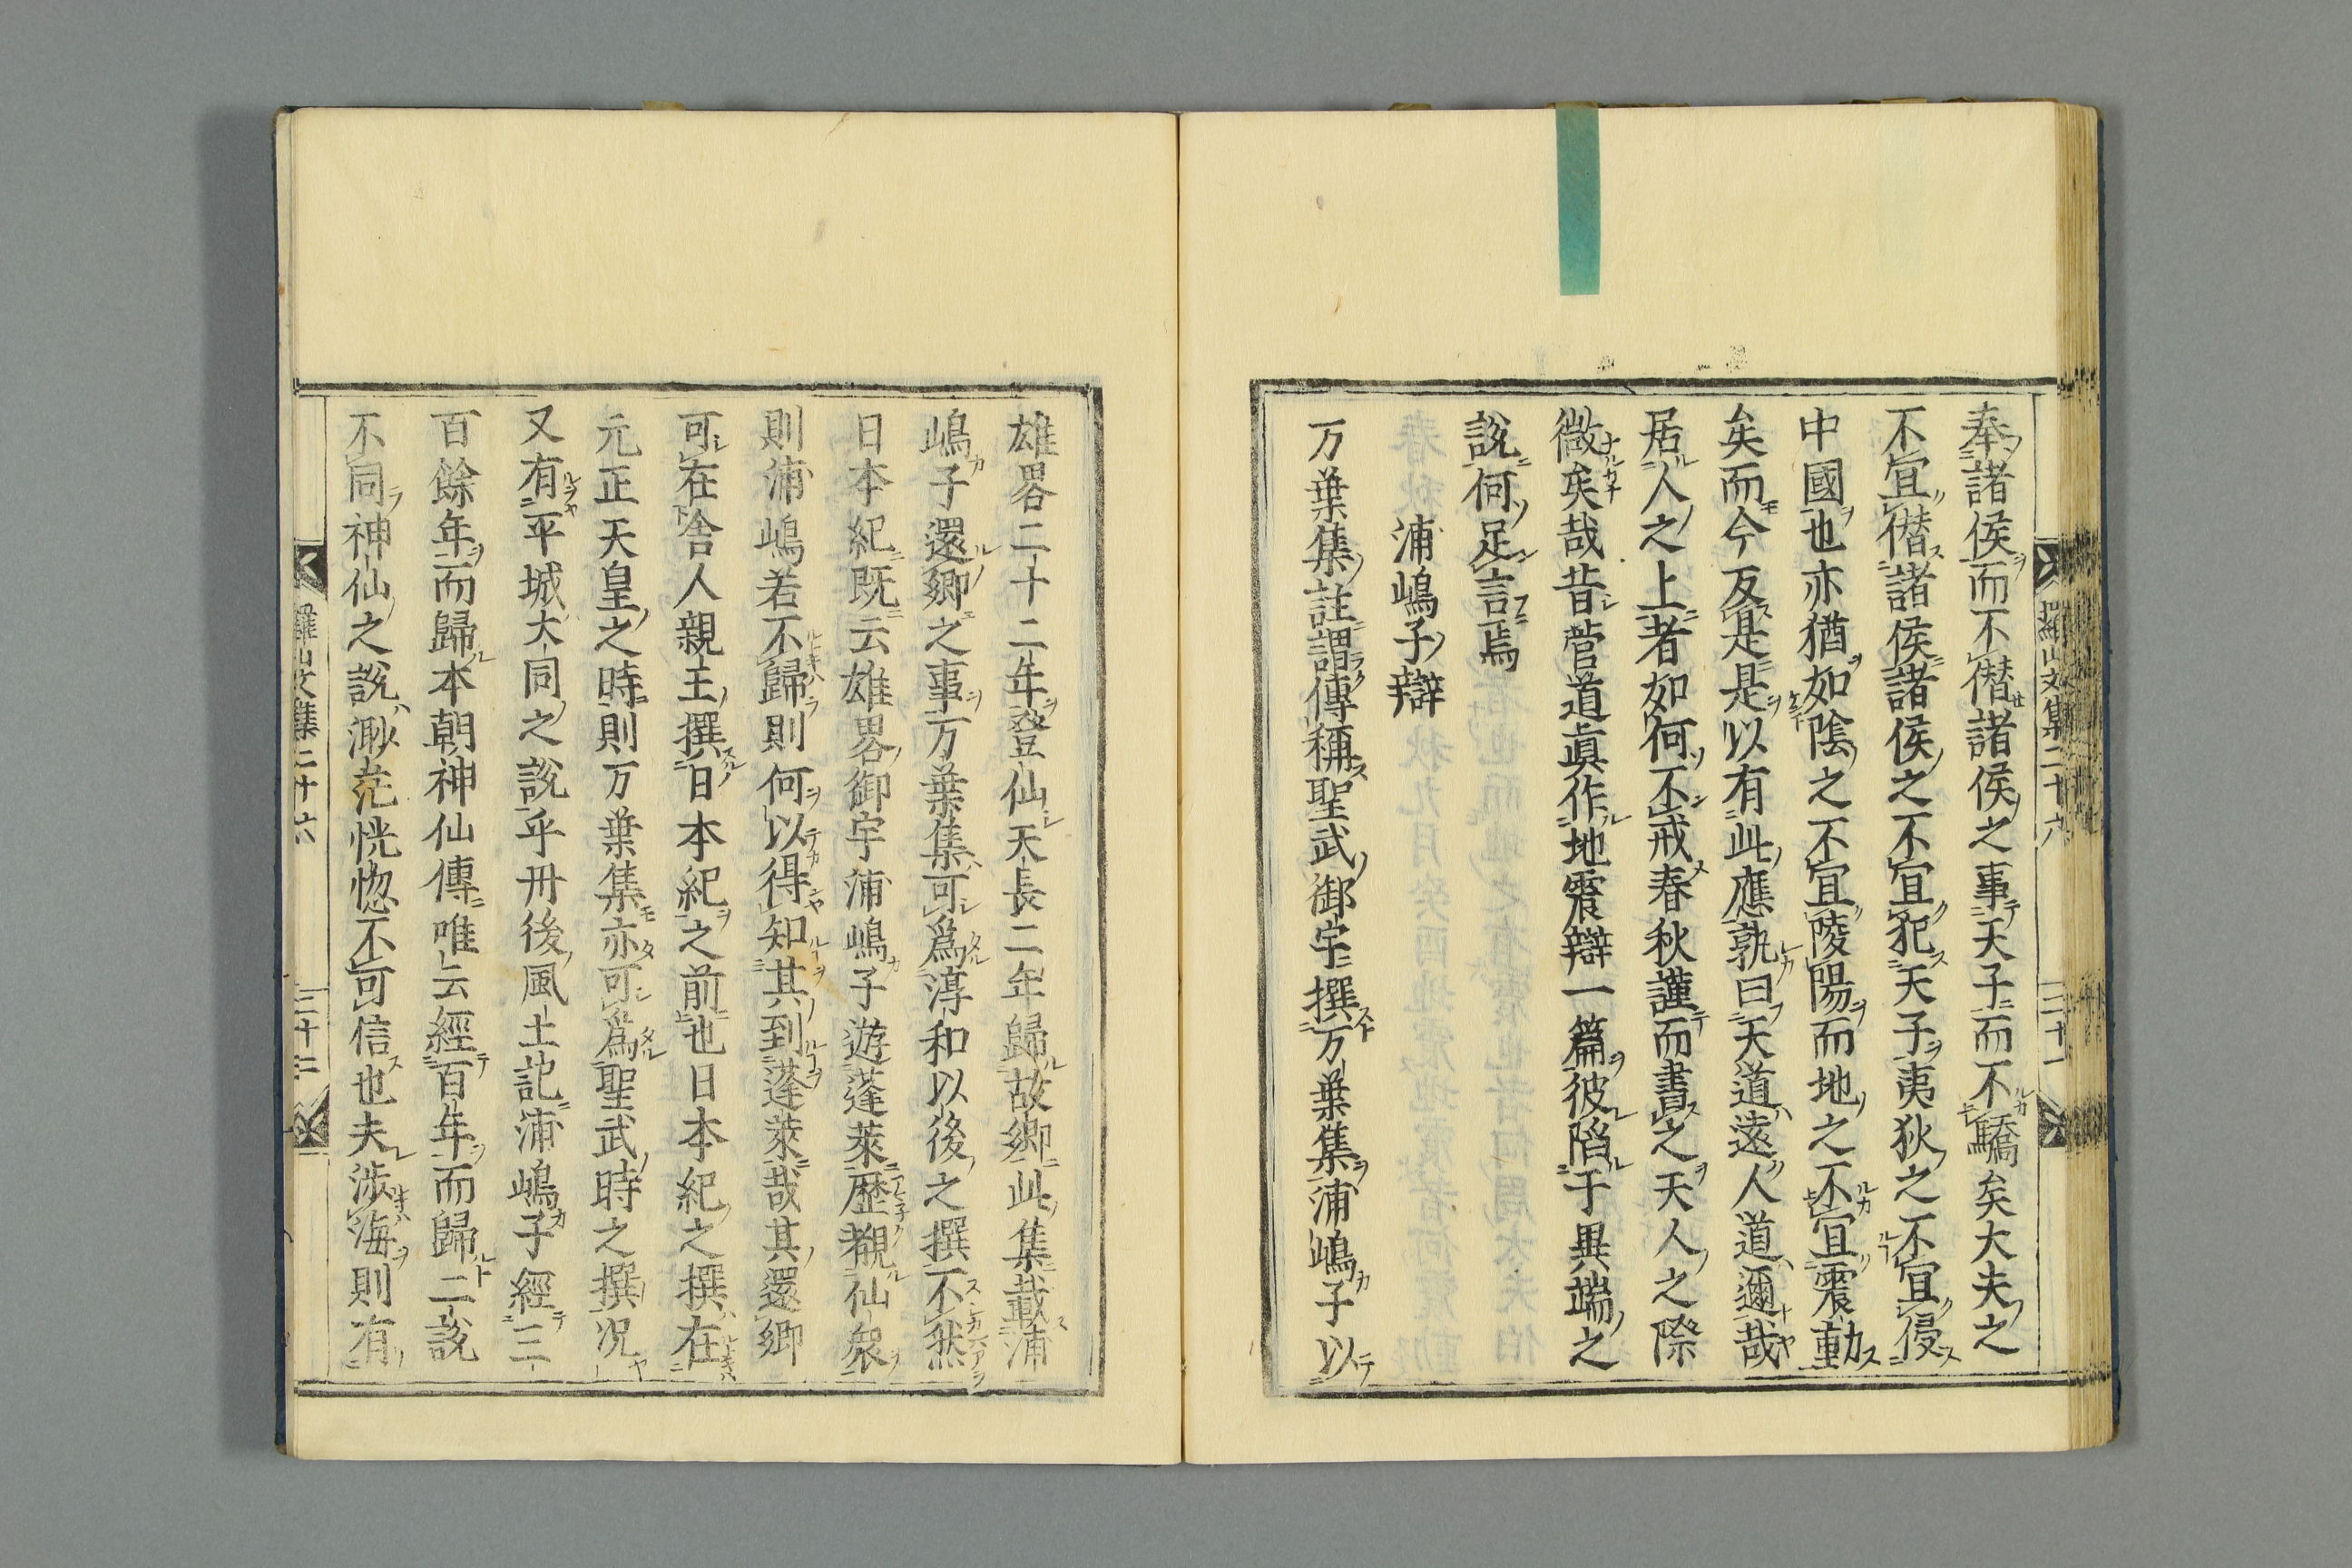 奉諸侯而不僭諸侯之事天子而不驕矣大夫之
不宜僭諸侯諸侯之不宜犯天子夷狄之不宜侵
中國也亦猶如陰之不宜陵陽而地之不宜震動
矣而今反是是以有此應孰曰天道遠人道邇哉
居人之上者如何不戒春秋謹而書之天人之際
微矣哉昔菅道眞作地震辯一篇彼陷于異端之
說何足言焉
浦嶋子辯
万葉集註謂傳稱聖武御宇撰万葉集浦嶋子以
羅山文集二十六
三十一
雄畧二十二年登仙天長二年歸故鄉此集載浦
嶋子還鄉之事万葉集可爲淳和以後之撰不然
日本紀既云雄畧御宇浦嶋子遊蓬萊歷覩仙衆
則浦嶋若不歸則何以得知其到蓬萊哉其還鄉
可在舎人親王撰日本紀之前也日本紀之撰在
元正天皇之時則万葉集亦可爲聖武時之撰况
又有平城大同之說乎丹後風土記浦嶋子經三
百餘年而歸本朝神仙傳唯云經百年而歸二說
不同神仙之說渺茫恍惚不可信也夫涉海則有
羅山文集二十六
三十二